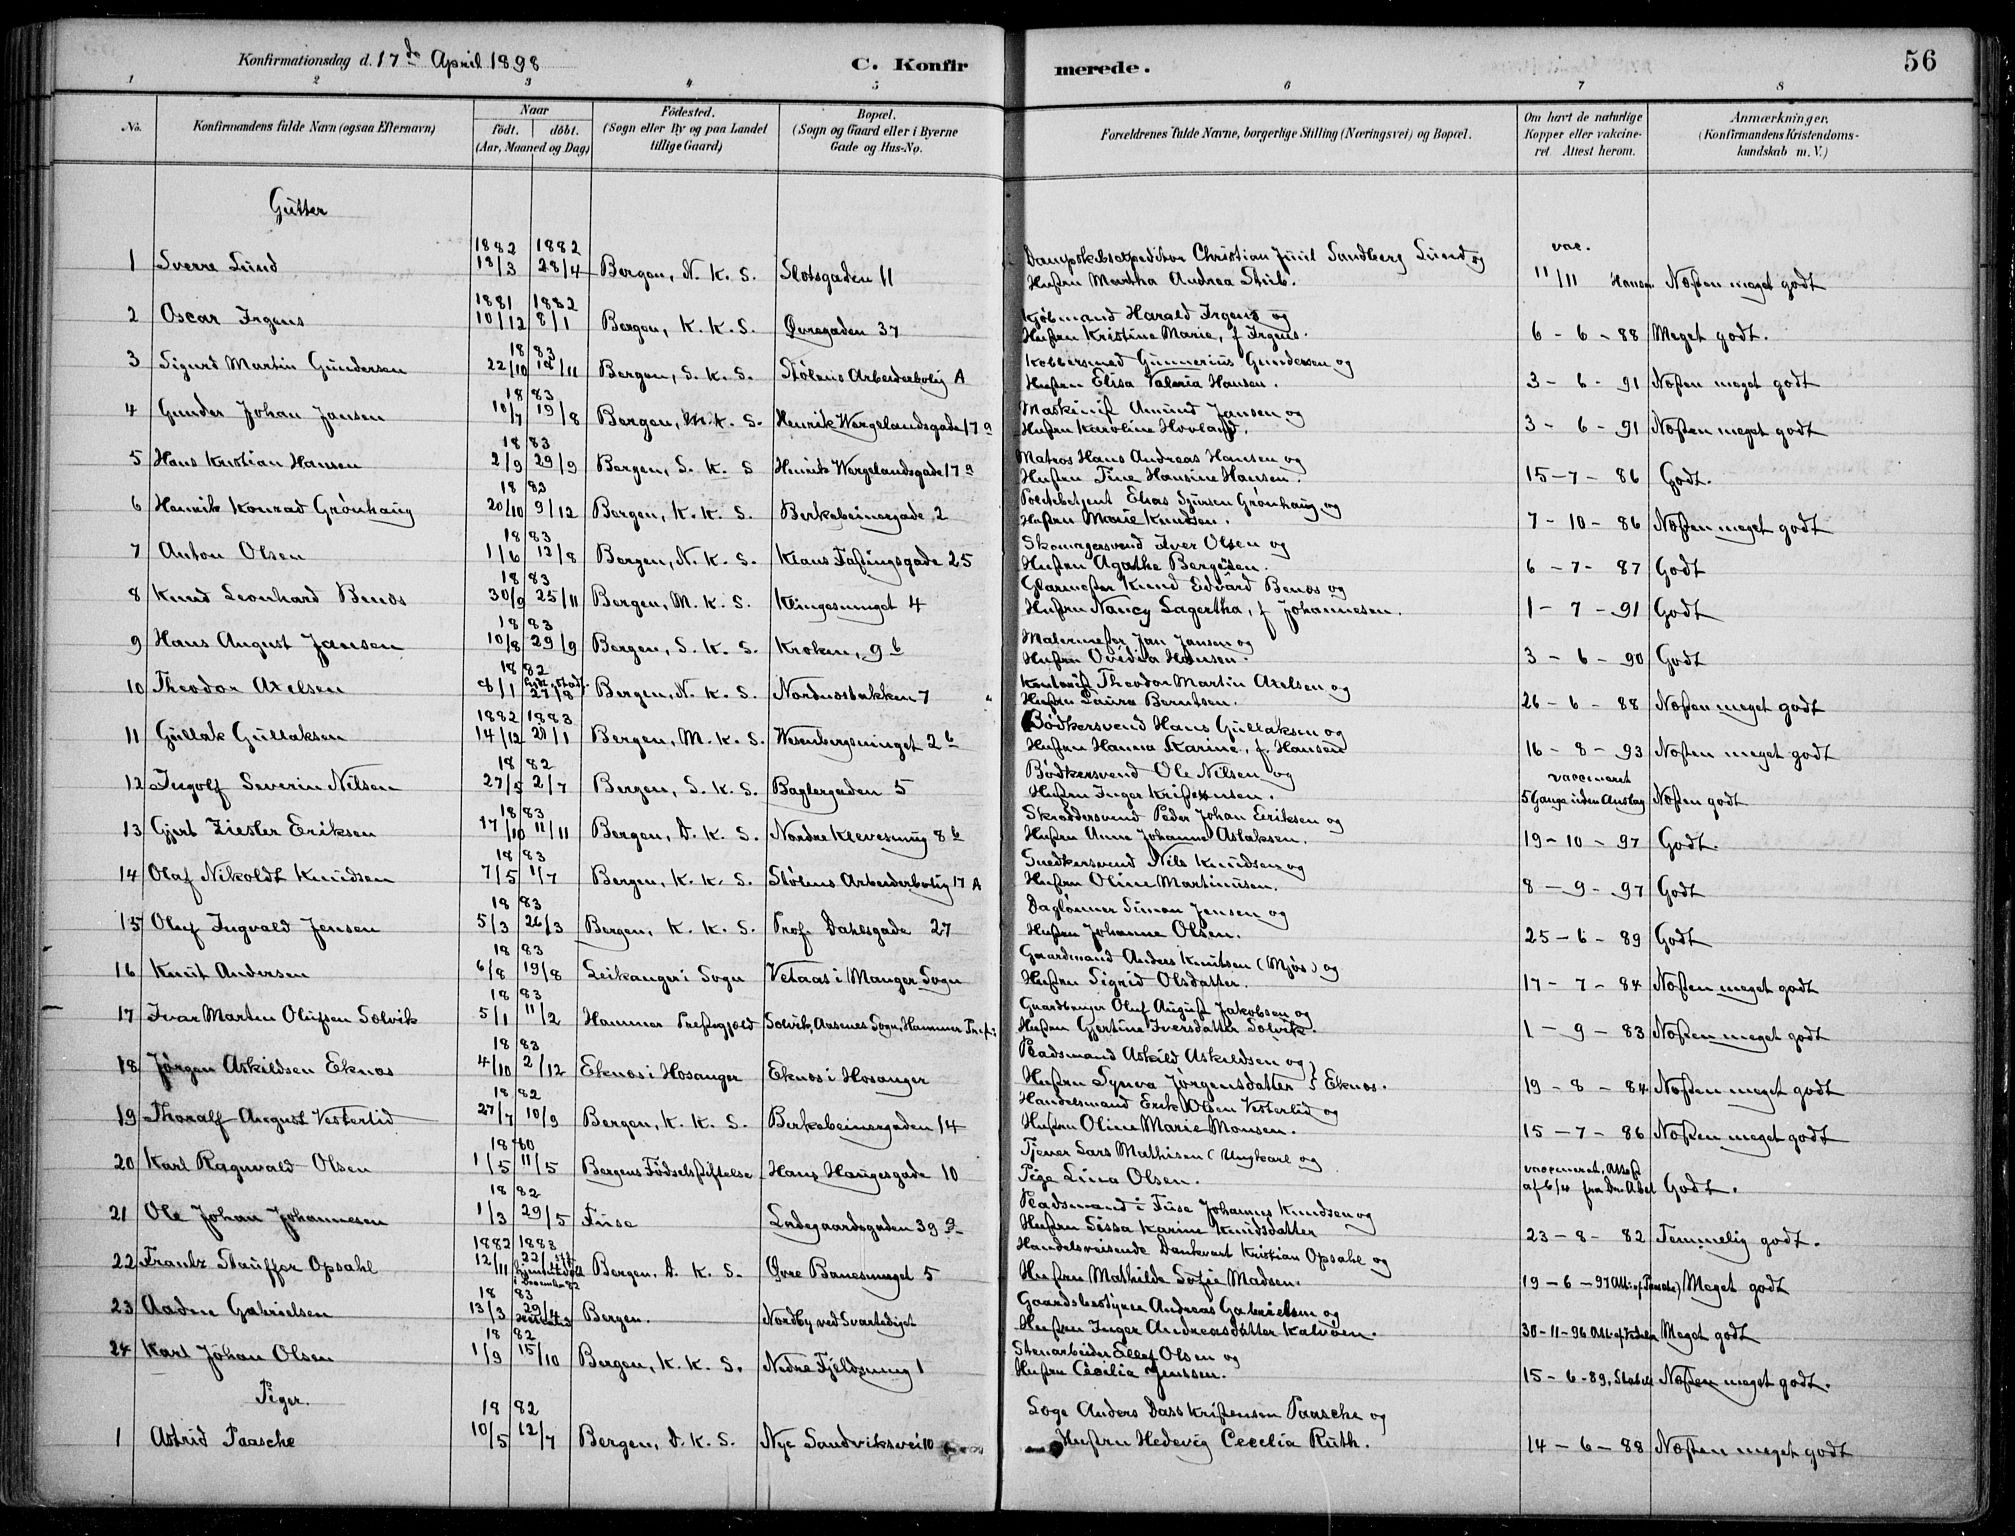 Konfirmationsdag d. 17de April 1898
C. Konfirmerede.
56
1 2 3 4 5 6 7 8
No. | Konfirmandens fulde Navn (ogsaa Efternavn) | Naar født. | døbt. (Aar, Maaned og Dag) | Fødested. (Sogn eller By og paa Landet tillige Gaard) | Bopæl. (Sogn og Gaard eller i Byerne Gade og Hus-No. | Forældrenes fulde Navne, borgerlige Stilling (Næringsvei) og Bopæl. | Om havt de naturlige Kopper eller vakcineret. Attest herom. | Anmærkninger. (Konfirmandens Kristendomskundskab m. V.)
Gutter
1 Sverre Lund 1882 18/3 1882 28/4 Bergen, N. K. S. Slotsgaden 11 Dampskibsexpeditør Christian Juul Sandberg Lund og Hustru Martha Andrea Stub. vac. 11/11 Hansen Næsten meget godt
2 Oscar Irgens 1881 10/12 1882 8/1 Bergen, K. K. S. Øvregaden 37 Kjøbmand Harald Irgens og Hustru Kristine Marie, f. Irgens. 6 - 6 - 88 Meget godt.
3 Sigurd Martin Gundersen 1883 22/10 18/11 Bergen, S. K. S. Stølens Arbeiderbolig A Kobbersmed Gunnerius Gundersen og Hustru Elisa Valeria Hansen. 3 - 6 - 91 Næsten meget godt
4 Gunder Johan Jansen 1883 10/7 19/8 Bergen, M. K. S. Henrik Wergelandsgade 17 a Maskinist Amund Jansen og Hustru Karoline Hovland. 3 - 6 - 91 Næsten meget godt
5 Hans Kristian Hansen 1883 2/9 29/9 Bergen, S. K. S Henrik Wergelandsgade 17 a Matros Hans Andreas Hansen og Hustru Tine Hansine Hansen. 15 - 7 - 86 Godt.
6 Henrik Konrad Grønhaug 1883 20/10 9/12 Bergen, K. K. S. Berkebeinergade 2 Politibetjent Elias Sjursen Grønhaug og Hustru Marie Knudsen. 7 - 10 - 86 Næsten meget godt
7 Anton Olsen 1883 1/6 12/8 Bergen, N. K. S. Klaus Fastingsgade 25 Skomagersvend Iver Olsen og Hustru Agathe Bergesen. 6 - 7 - 87 Godt
8 Knud Leonhard Benøs 1883 30/9 25/11 Bergen, M. K. S. Klingesmuget 4 Glarmester Knud Edvard Benøs og Hustru Nancy Lagertha, f. Johannesen. 1 - 7 - 91 Godt
9 Hans August Jansen 1883 10/8 29/9 Bergen, S. K. S. Kroken, 9 b Malermester Jan Jansen og Hustru Ovidia Hansen. 3 - 6 - 90 Godt
10 Theodor Axelsen 1882 8/1 27/8 Bergen, N. K. S. Nordnæsbakken 7 Kontorist Theodor Martin Axelsen og Hustru Laura Berntsen. 26 - 6 - 88 Næsten meget godt
11 Gullak Gullaksen 1882 14/12 1883 21/1 Bergen, M. K. S. Wesenbergsmuget 2 b Bødkersvend Hans Gullaksen og Hustru Hanna Karine, f. Hansen 16 - 8 - 93 Næsten meget godt
12 Ingolf Severin Nilsen 1882 27/5 2/7 Bergen, S. K. S. Baglergaden 5 Bødkersvend Ole Nilsen og Hustru Inger Kristensen. vaccineret 5 Gange uden Anslag Næsten godt
13 Gjert Ziesler Eriksen 1883 17/10 11/11 Bergen, D. K. S. Nordre Klevesmug 8 b Skræddersvend Peder Johan Eriksen og Hustru Anne Johanne Aslaksen. 19 - 10 - 97 Godt.
14 Olaf Nikoldt Knudsen 1883 7/5 1/7 Bergen, K. K. S. Stølens Arbeiderbolig 17 A Snedkersvend Nils Knudsen og Hustru Oline Martinusen. 8 - 9 - 97 Godt
15 Oluf Ingvald Jensen 1883 5/3 26/3 Bergen, K. K. S. Prof. Dahlsgade 27 Daglønner Simon Jensen og Hustru Johanne Olsen. 25 - 6 - 89 Godt
16 Knut Andersen 1883 6/8 19/8 Leikanger i Sogn Vetaas i Manger Sogn Gaardmand Anders Knutsen (Mjøs) og Hustru Sigrid Olsdatter. 17 - 7 - 84 Næsten meget godt
17 Ivar Martin Olufsen Solvik 1883 5/1 11/2 Hammer Prestegjeld Solvik, Aasenes Sogn, Hammer Prgj. Gaardbruger Oluf August Jakobsen og Hustru Gjertine Iversdatter Solvik. 1 - 9 - 83 Næsten meget godt
18 Jørgen Askildsen Eknæs 1883 4/10 2/12 Eknæs i Hosanger Eknæs i Hosanger Pladsmand Askild Askildsen og Hustru Synva Jørgensdatter } Eknæs. 19 - 8 - 84 Næsten meget godt
19 Thoralf August Vesterlid 1882 27/7 10/9 Bergen, K. K. S. Berkebeinergaden 14 Handelsmand Erik Olsen Vesterlid og Hustru Oline Marie Monsen. 15 - 7 - 86 Næsten meget godt
20 Karl Ragnvald Olsen 1880 1/5 11/5 Bergens Fødselsstiftelse Hans Haugesgade 10 Tjener Lars Mathisen (Ungkarl og Pige Lina Olsen. vaccineret, Attest af 6/4 fra Dr. Abel Godt.
21 Ole Johan Johannesen 1882 1/3 29/5 Fuse Ladegaardsgaden 39 a Pladsmand i Fuse Johannes Knudsen og Hustru Sissa Karine Knudsdatter 23 - 8 - 82 Temmelig godt.
22 Frantz Stauffer Opsahl 1882 12/11 1883 22/1 Bergen, D. K. S. Øvre Banesmuget 5 Handelsreisende Dankvart Kristian Opsahl og Hustru Mathilde Sofie Madsen. 19 - 6 - 97 Meget godt
23 Aadne Gabrielsen 1883 13/3 29/4 Bergen. Nordby ved Svartediget Gaardsbestyrer Andreas Gabrielsen og Hustru Inger Andreasdatter Kalvøen. 30 - 11 - 96 Meget godt
24 Karl Johan Olsen 1882 1/9 15/10 Bergen, K. K. S. Nedre Fjeldsmug 1 Stenarbeider Ellef Olsen og Hustru Cecilia Jenssen. 15 - 6 - 89, Næsten meget godt.
Piger.
1 Astrid Paasche 1882 10/5 12/7 Bergen, D. K. S. Nye Sandviksvei 10 Læge Anders Dass Kristensen Paasche og Hustru Hedevig Cecelia Ruth. 14 - 6 - 88 Næsten meget godt